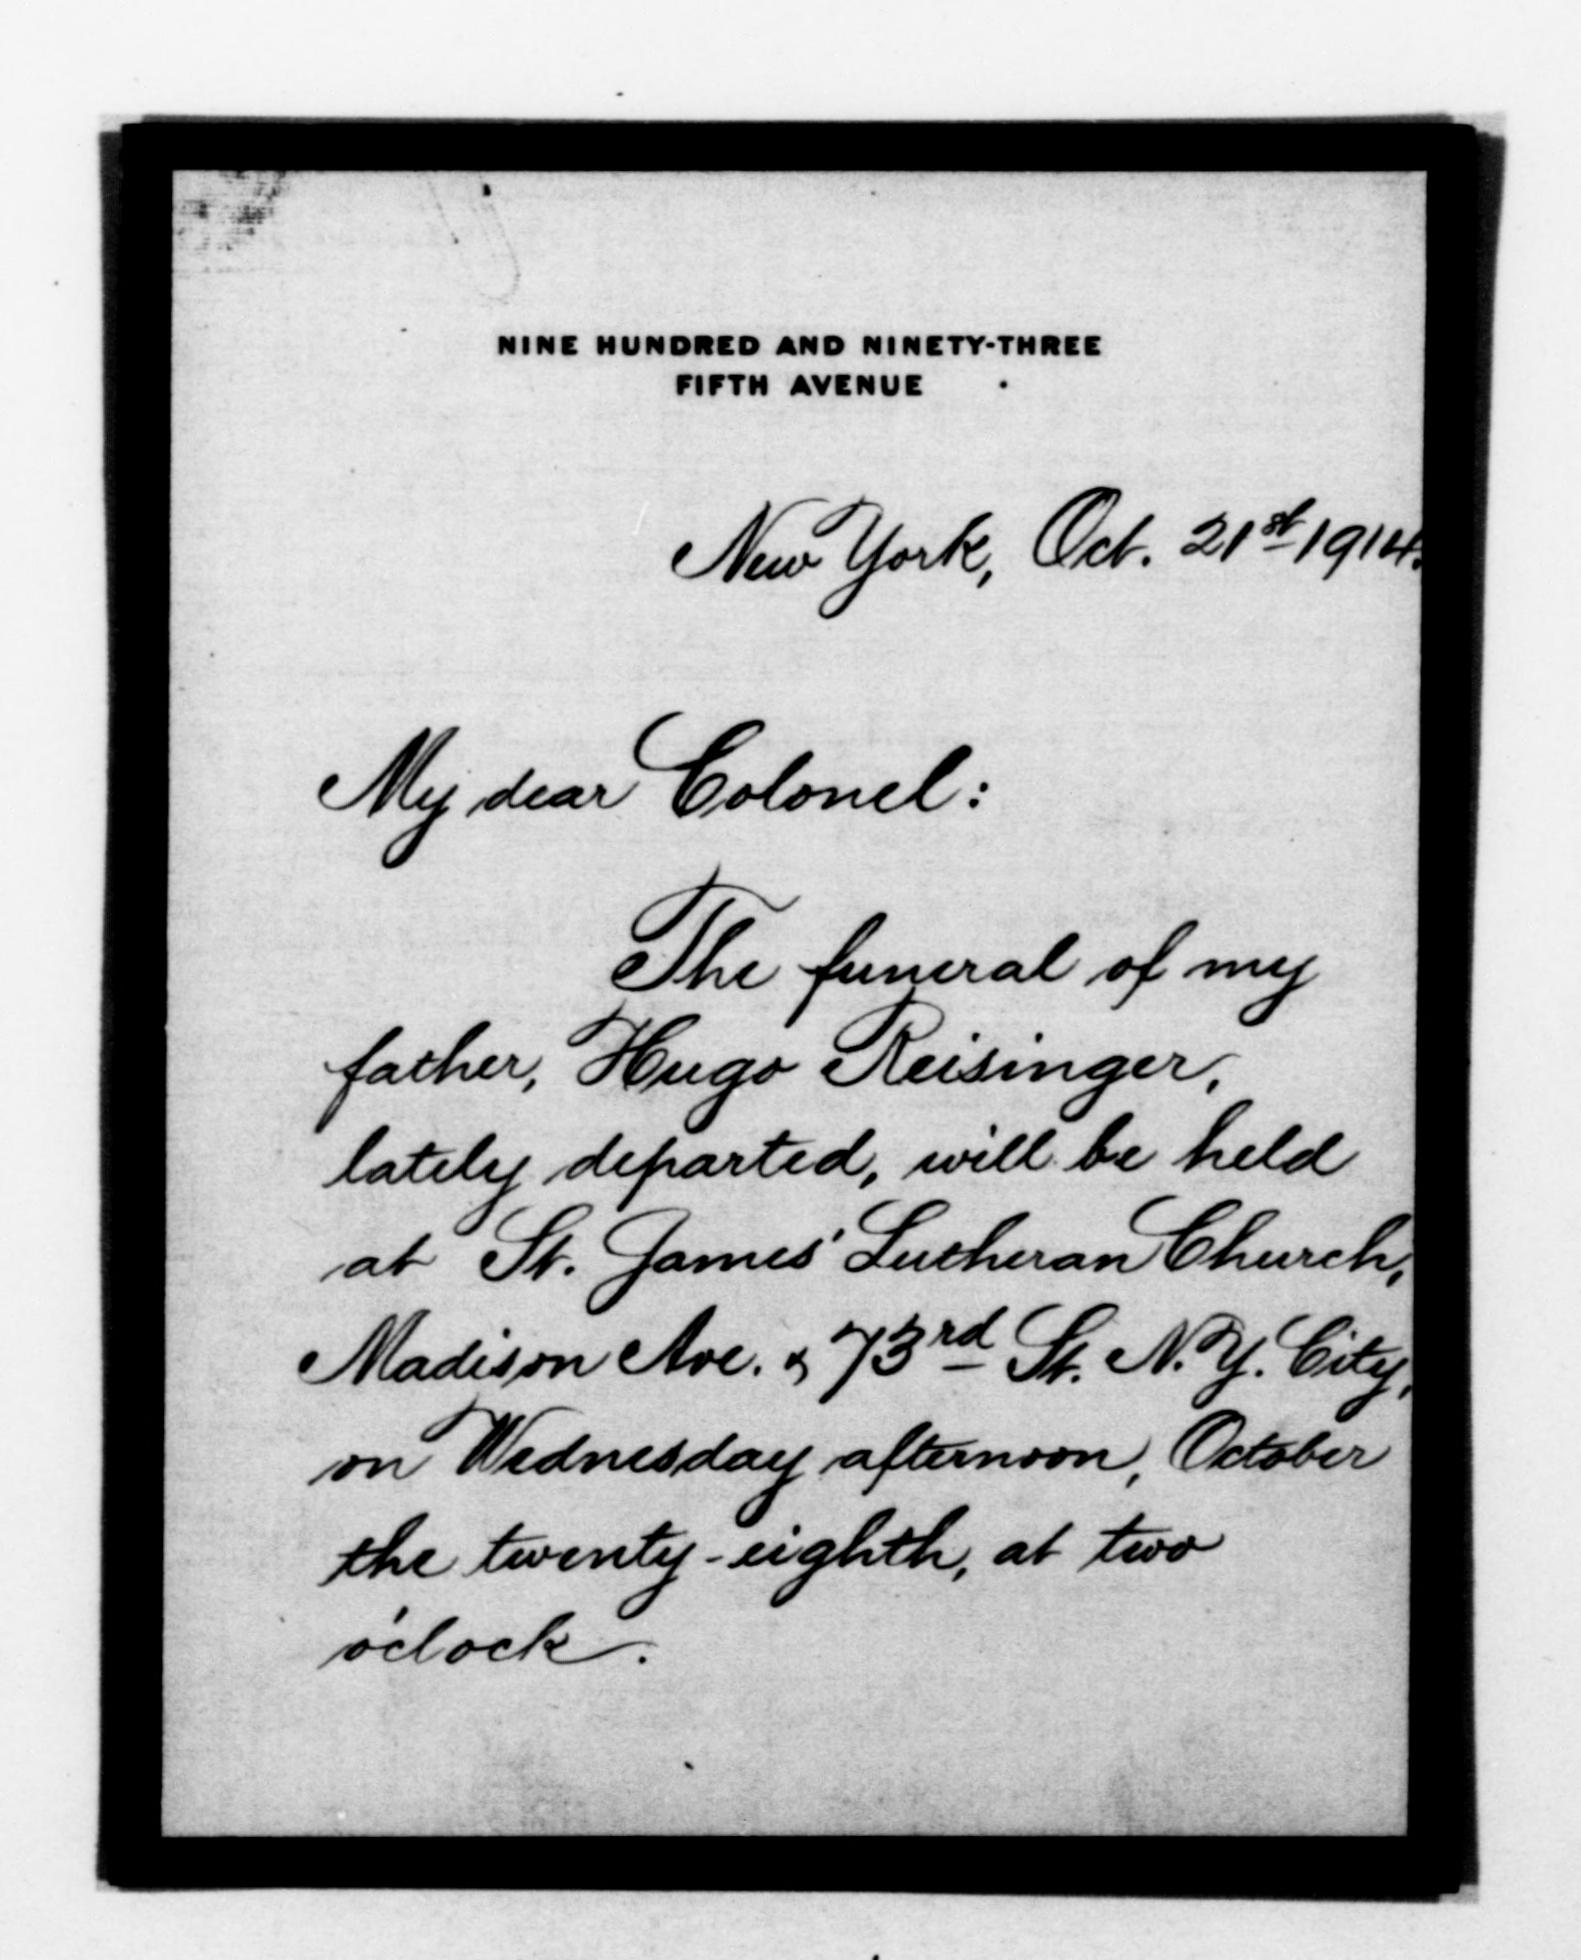 NINE HUNDRED AND NINETY-THREE
FIFTH AVENUE
New York, Oct. 21st 1914.
My dear Colonel:
The funeral of my
father, Hugo Reisinger,
lately departed, will be held
at St. James' Lutheran Church,
Madison Ave. & 73rd St. N.Y. City,
on Wednesday afternoon, October
the twenty-eighth, at two
o'clock.